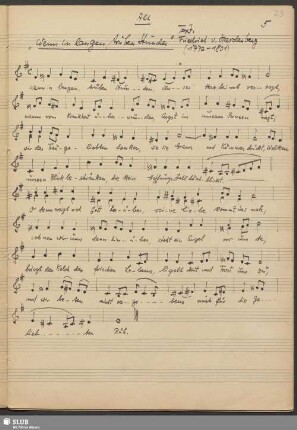 Alt
5
Text:
Friedrich v. Hardenberg
(1772 - 1801)
Wenn in bangen trüben Stunden
wenn in bangen trüben Stun - den un - ser Herz bei - nah ver - zagt,
wenn von Krankheit ü - ber - wun - den Angst in unserm Innern nagt;
wir der Treu - ge - liebten denken, wie sie Gram und Kummer drückt, Wolken
unsern Blick be - schränken, die kein Hoffnungsstrahl durch - blickt.
O dann neigt sich Gott her - ü - ber, sei - ne Lie - be kommt uns nah,
seh - nen wir uns dann hin - ü - ber steht ein Engel vor uns da,
bringt den Kelch des frischen Le - bens, lispelt Mut und Trost uns zu,
und wir be - ten nicht ver - ge - bens auch für die Ge -
lieb - ten Ruh.
SLUB